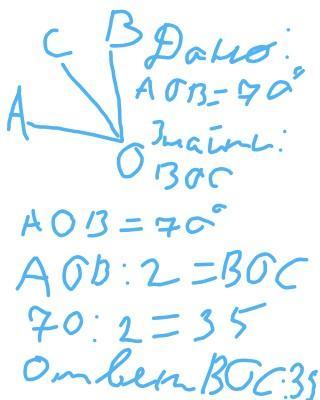 C B Дано:
A AOB=70°
O Знайти:
BOC
AOB=70°
AOB:2=BOC
70:2=35
Ответ BOC:35